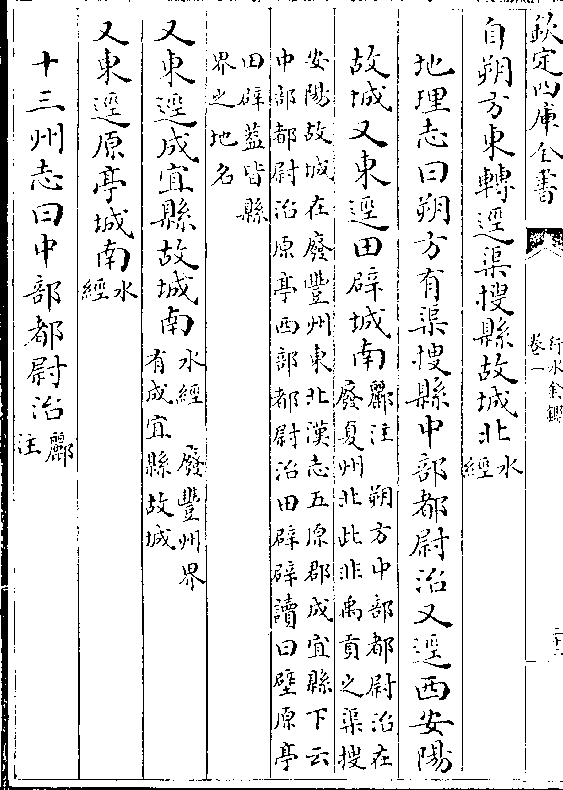 欽定四庫全書
行水金鑑
卷一
自朔方東轉逕渠搜縣故城北水經
地理志曰朔方有渠搜縣中部都尉治又逕西安陽
故城又東逕田辟城南酈注 朔方中部都尉治在廢夏州北此非禹貢之渠搜
安陽故城在廢豐州東北漢志五原郡成宜縣下云
中部都尉治原亭西部都尉治田辟辟讀曰壁原亭
田辟葢皆縣
界之地名
又東逕成宜縣故城南水經 廢豐州界有成宜縣故城
又東逕原亭城南水經
十三州志曰中部都尉治酈注